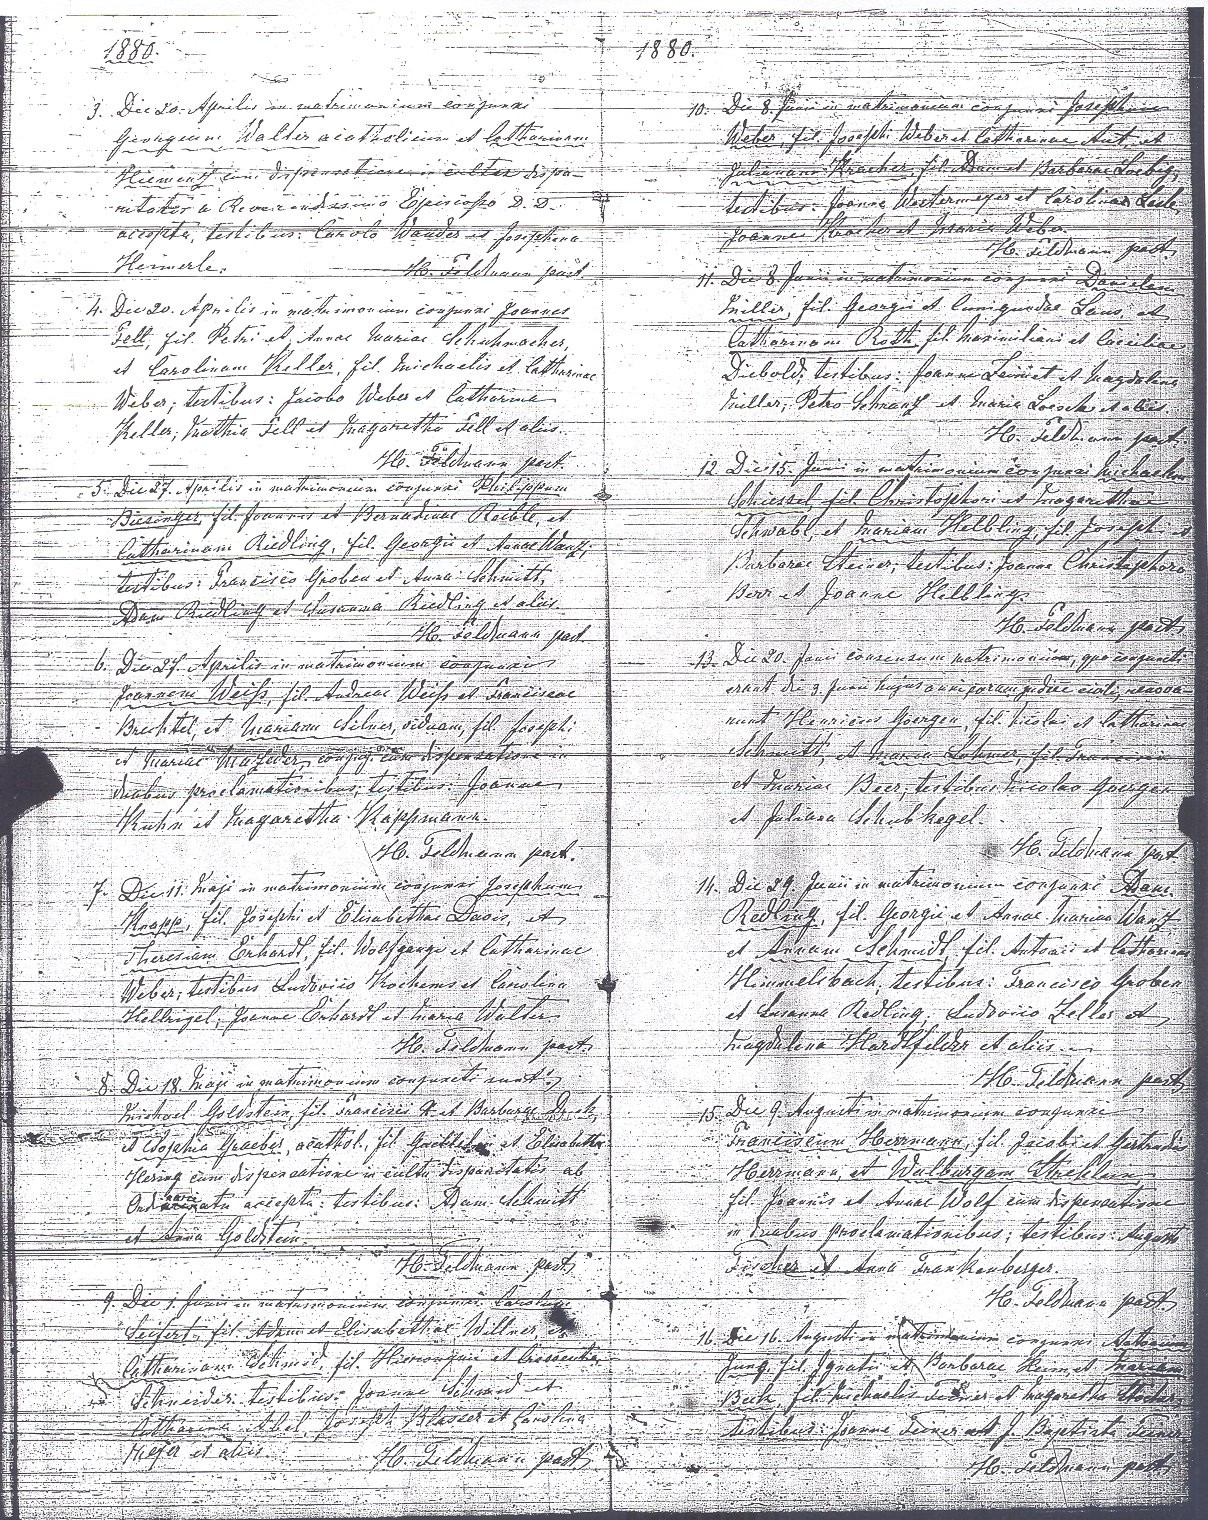 1880.
3. Die 20. Aprilis in matrimonium conjunxi
Georgeum Walter acatholicum et Catharinam
Hiemenz cum dispensatione in cultus dispa-
ritatis a Reverendissimo Episcopo D. D.
accepta, testibus: Carolo Wander et Josephina
Heimerle.
H. Feldmann past.
4. Die 20. Aprilis in matrimonium conjunxi Joannes
Fell, fil. Petri et Annae Mariae Schuhmacher,
et Carolinam Keller, fil. Michaelis et Catharinae
Weber; testibus: Jacobo Weber et Catharina
Keller; Mathia Fell et Magaretha Fell et aliis.
H. Feldmann past.
5. Die 27. Aprilis in matrimonium conjunxi Philippum
Biesinger, fil. Joannis et Bernadinae Roible, et
Catharinam Riedling, fil. Georgii et Annae Wanz;
testibus: Francisco Groben et Anna Schmitt,
Adam Riedling et Susanna Riedling et aliis.
H. Feldmann past.
6. Die 27. Aprilis in matrimonium conjunxi
Joannem Weiß, fil. Andreae Weiß et Franciscae
Brechtel, et Mariam Silner, viduam, fil. Josephi
et Mariae conjug. cum dispensatione in
duabus proclamationibus; testibus: Joanne
Kuhn et Magaretha Kappmann.
H. Feldmann past.
7. Die 11. Maji in matrimonium conjunxi Josephum
Knapp, fil. Josephi et Elisabethae Davis, et
Theresiam Erhardt, fil. Wolfgangi et Catharinae
Weber; testibus Ludovico Kochems et Carolina
Hellrigel; Joanne Erhardt et Maria Walter.
H. Feldmann past.
8. Die 18. Maji in matrimonium conjuncti sunt:
Michael Goldstein, fil. Francisci et Barbarae
et Sophia Graeber, acathol., fil. Gottlieb et Elisabetha
Hering cum dispensatione in cultu disparitatis ab
accepta: testibus: Adam Schmitt
et Anna Goldstein.
H. Feldmann past.
9. Die 1. Junii in matrimonium conjunxi Carolum
Seifert, fil. Adam et Elisabethae Willner, et
Catharinam Schmid, fil. Hieronymi et Crescentia
Schneider: testibus: Joanne Schmid et
Catharina Abel, Joseph Blaser et Carolina
Meyer et aliis
H. Feldmann past.
1880.
10. Die 8. Junii in matrimonium conjunxi Josephum
Weber, fil. Josephi Weber et Catharinae Aut, et
Julianam Kracher, fil. Adam et Barbarae Loebig,
testibus: Joanne Westermeyer et Carolina
Joanne Kracher et Maria Weber.
H. Feldmann past.
11. Die 8. Junii in matrimonium conjunxi Danielem
Miller, fil. Georgii et Cunigundae Laus, et
Catharinam Roth, fil. Maximiliani et Caeciliae
Diebold; testibus: Joanne et Magdalena
Miller; Petro Schranz et Maria Loesch et aliis.
H. Feldmann past.
12. Die 15. Junii in matrimonium conjunxi Michaelem
Schiessel, fil. Christophori et Magarethae
Schwabl, et Mariam Helbling, fil. Josephi et
Barbarae Steiner; testibus: Joanne Christophoro
Berr et Joanne Helbling.
H. Feldmann past.
13. Die 20. Junii consensum matrimonium, quo conjuncti
erant die 3. Junii hujus anni coram judice civili, renova-
runt Henricus Goergen, fil. Nicolai et Catharinae
Schmitt, et Maria Lohmer, fil. Francisci
et Mariae Beer, testibus Nicolao Goergen
et Juliana Schubkegel.
H. Feldmann past.
14. Die 29. Junii in matrimonium conjunxi Adam
Redling, fil. Georgii et Annae Mariae Wanz
et Annam Schmidt, fil. Antonii et Catharinae
Himmelsbach, testibus: Francisco Groben
et Susanna Redling; Ludovico Zeller et
Magdalena Hardtfelder et aliis.
H. Feldmann past.
15. Die 9. Augusti in matrimonium conjunxi
Franciscum Herrmann, fil. Jacobi et Gertrudis
Herrmann, et Walburgam Strehlein,
fil. Joannis et Annae Wolf cum dispensatione
in duabus proclamationibus; testibus: August
Fischer et Anna Frankenberger.
H. Feldmann past.
16. Die 16. Augusti in matrimonium conjunxi Antonium
Jung, fil. Ignatii et Barbarae Heim et Mariam
Beck, fil. Michaelis et Magaretha
testibus: Joanne et J. Baptista
H. Feldmann past.